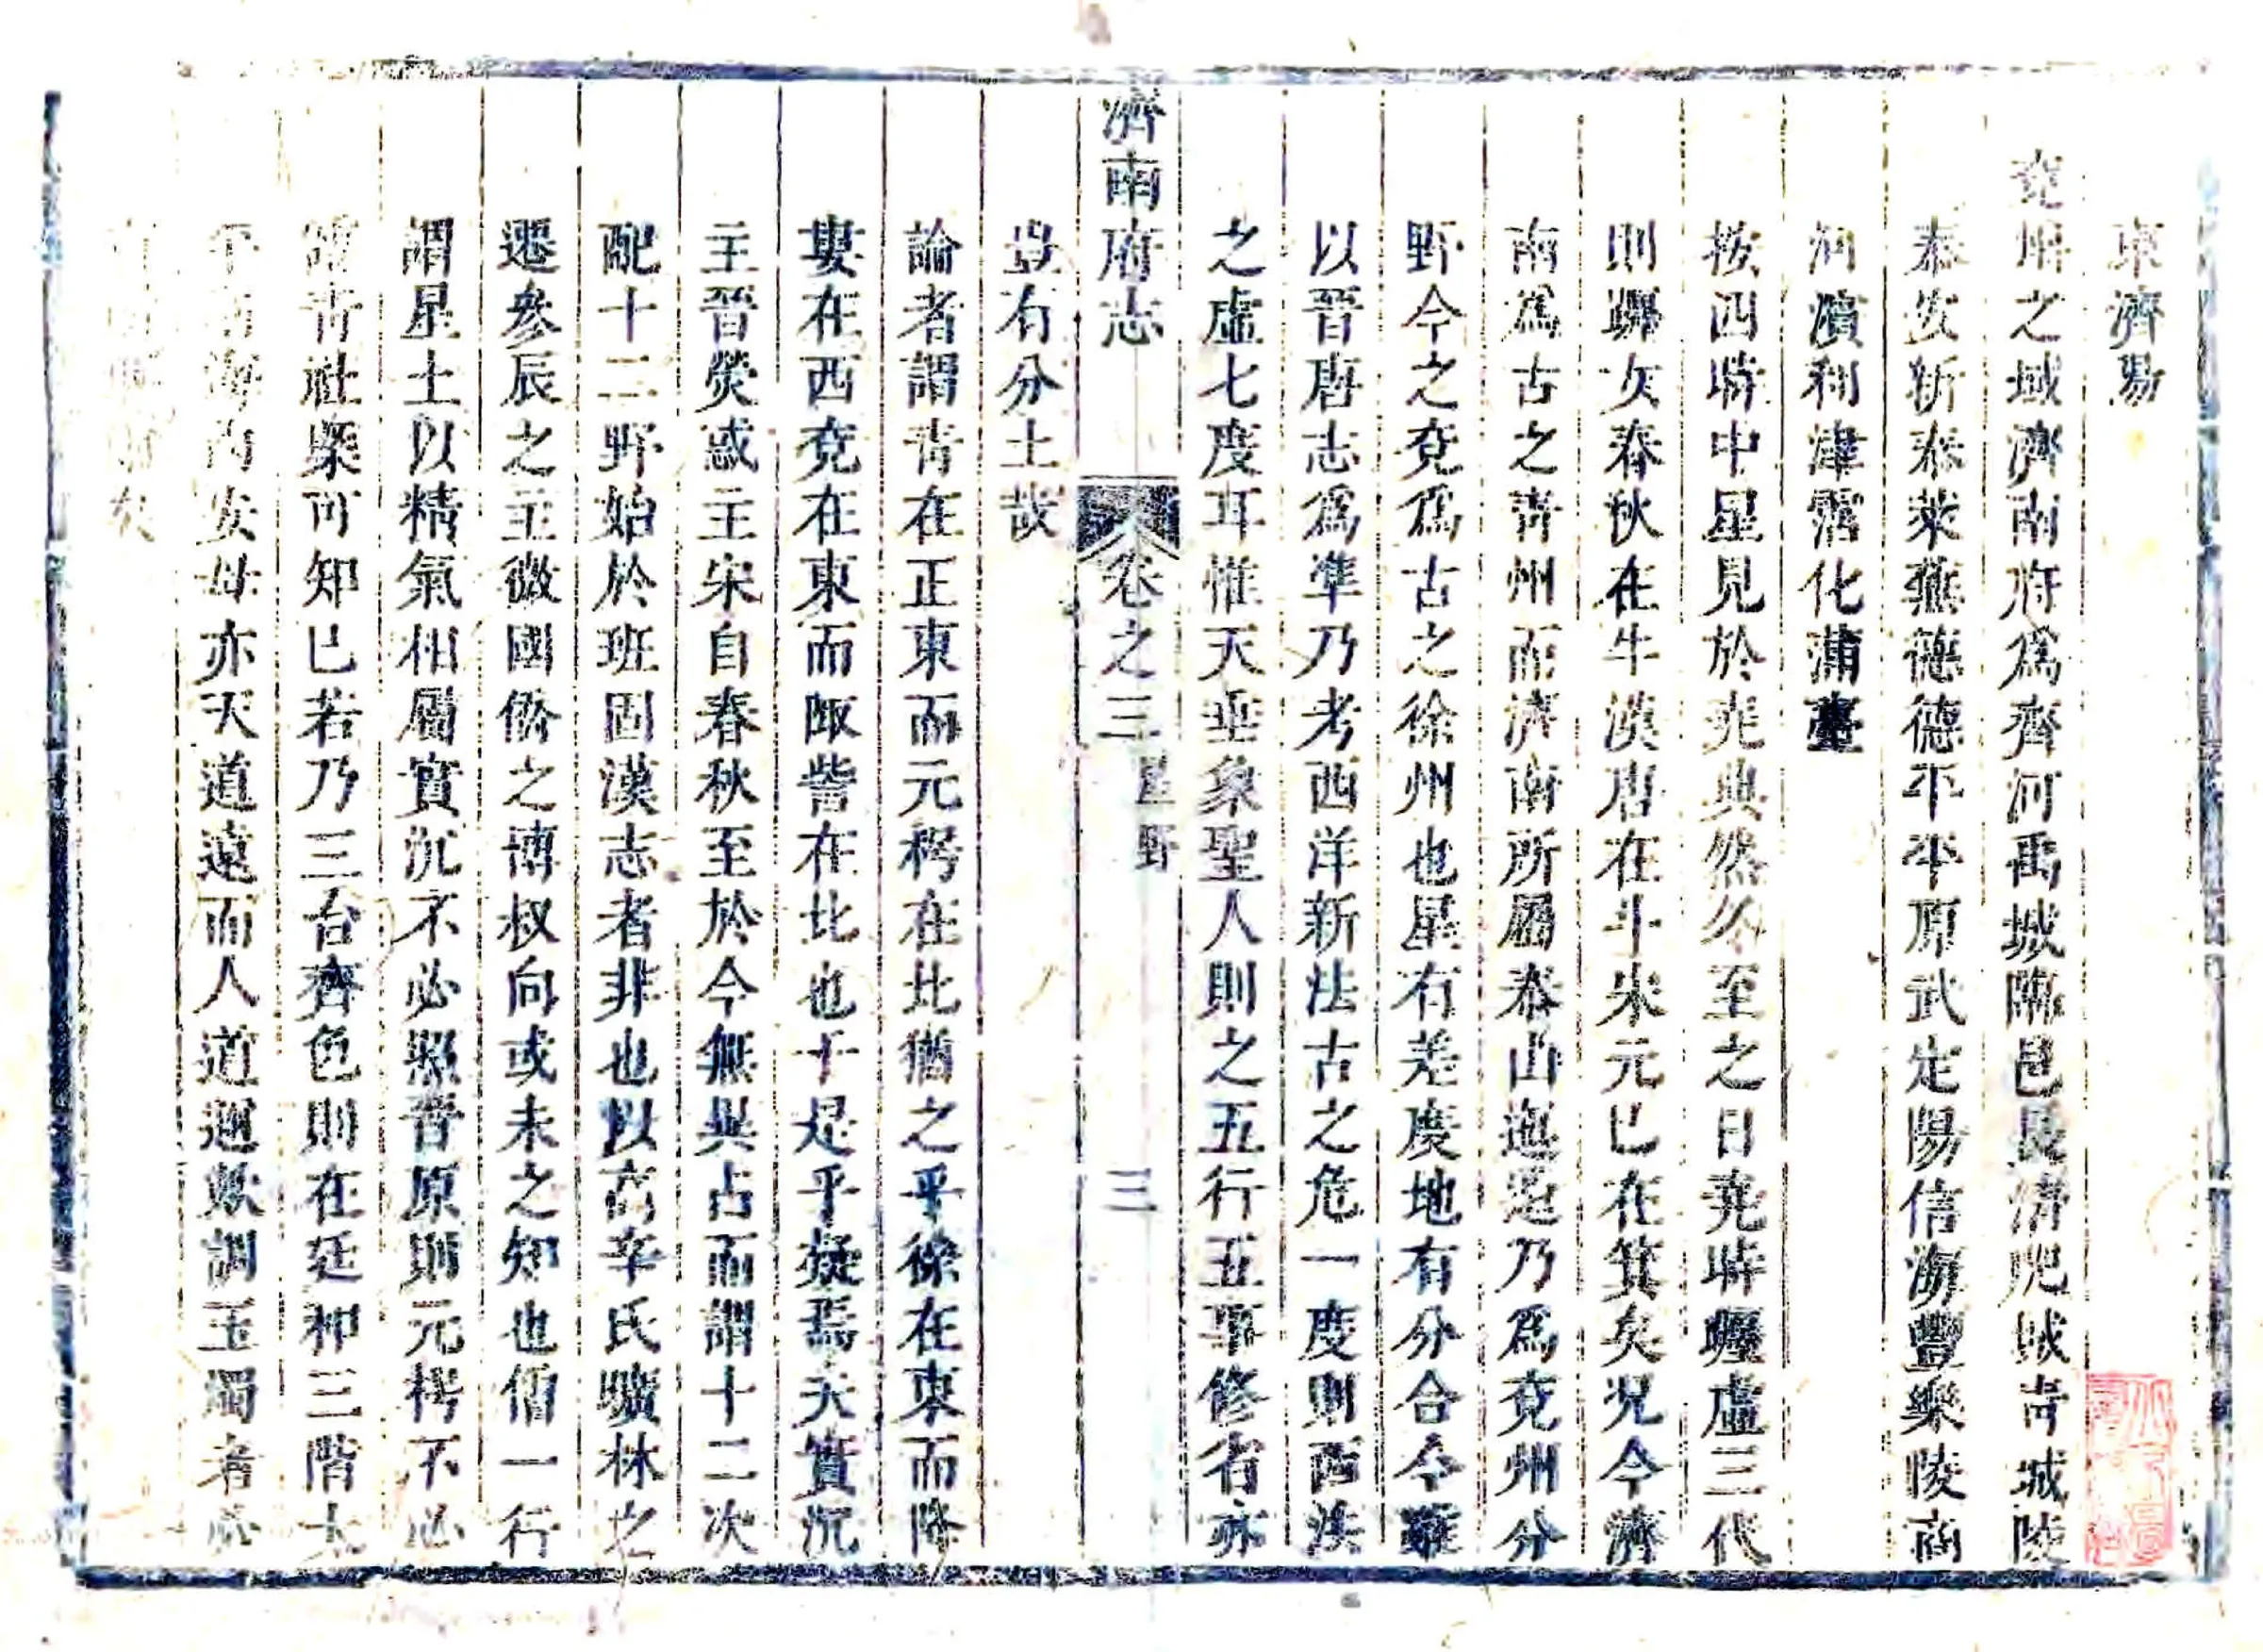 東濟易
兗州之域濟南府為齊河禹城臨邑長清肥城青城陵
泰安新泰萊蕪德德平平原武定陽信海豐樂陵商
河濱利津霑化蒲臺
按四時中星見於堯典然冬至之日堯時躔虛三代
則躔女春秋在牛漢唐在斗宋元已在箕矣况今濟
南為古之青州而濟南所屬泰山迤邐乃為兗州分
野今之兗為古之徐州也星有差度地有分合今雖
以晉唐志為準乃考西洋新法古之危一度則西法
之虛七度耳惟天垂象聖人則之五行五事修省亦
濟南府志 卷之三 星野 三
豈有分土哉
論者謂青在正東而元枵在北猶之乎徐在東而降
婁在西兗在東而陬訾在北也于是乎疑焉夫實沉
主晉熒惑主宋自春秋至於今無異占而謂十二次
配十二野始於班固漢志者非也以高辛氏曠林之
遷參辰之主微國僑之博叔向或未之知也僧一行
謂星土以精氣相屬實沉不必照晉原則元枵不必
青社槩可知已若乃三台齊色則在廷神三階太
平 海內安毋亦天道遠而人道邇歟調玉濁者必
矣